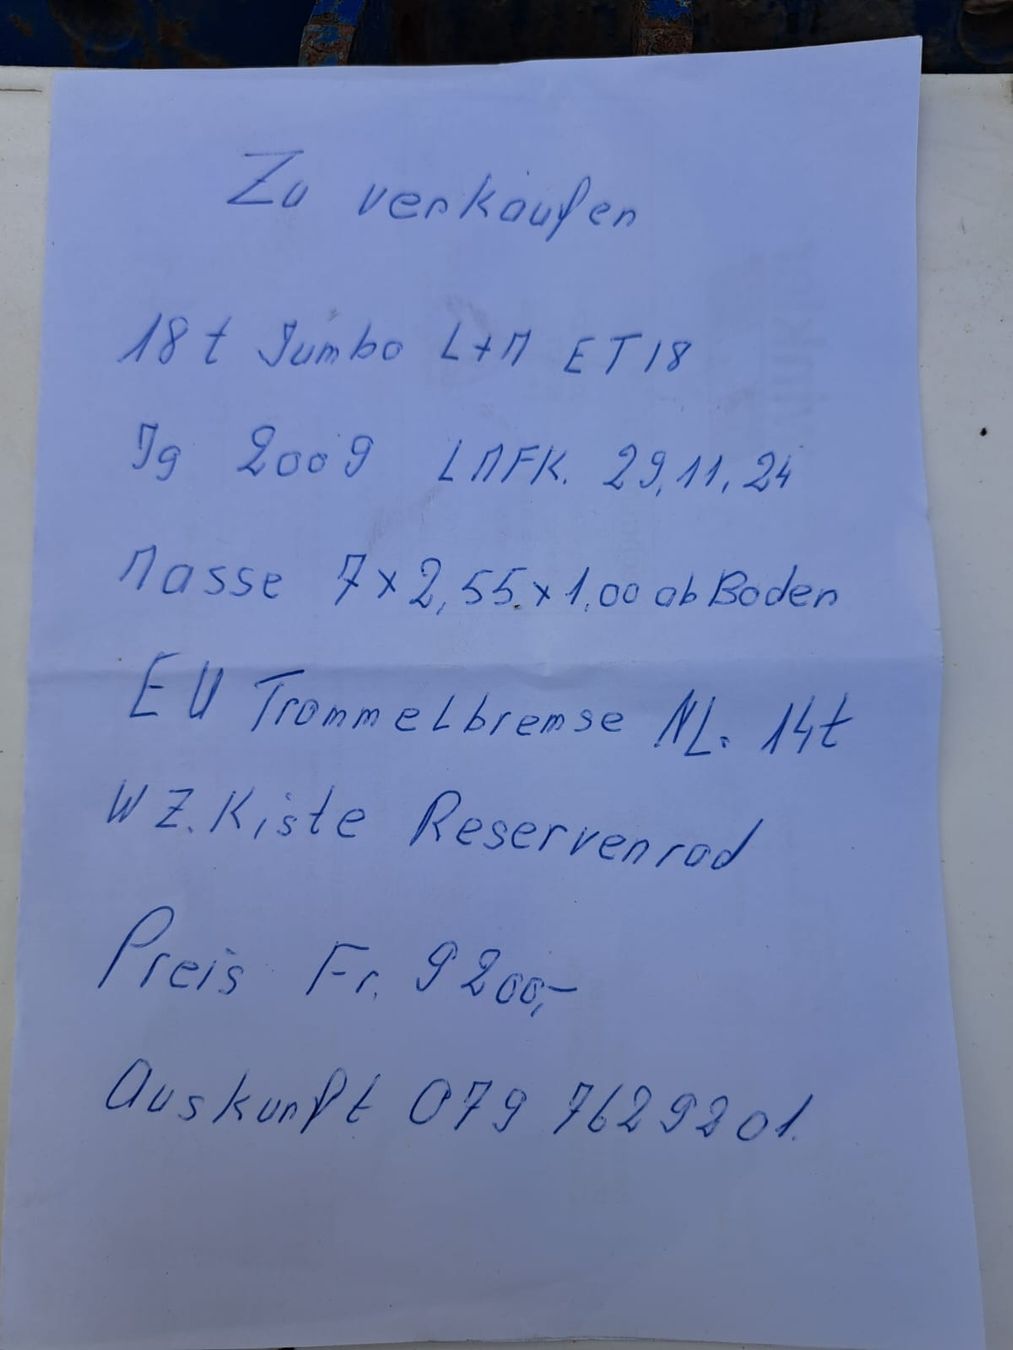 Zu verkaufen
18 t Jumbo L+M ET18
Jg 2009 LMFK. 29,11,24
Masse 7x2,55x1,00 ab Boden
EU Trommelbremse NL. 14t
WZ.Kiste Reservenrad
Preis Fr. 9200,-
Auskunft 079 7629201.